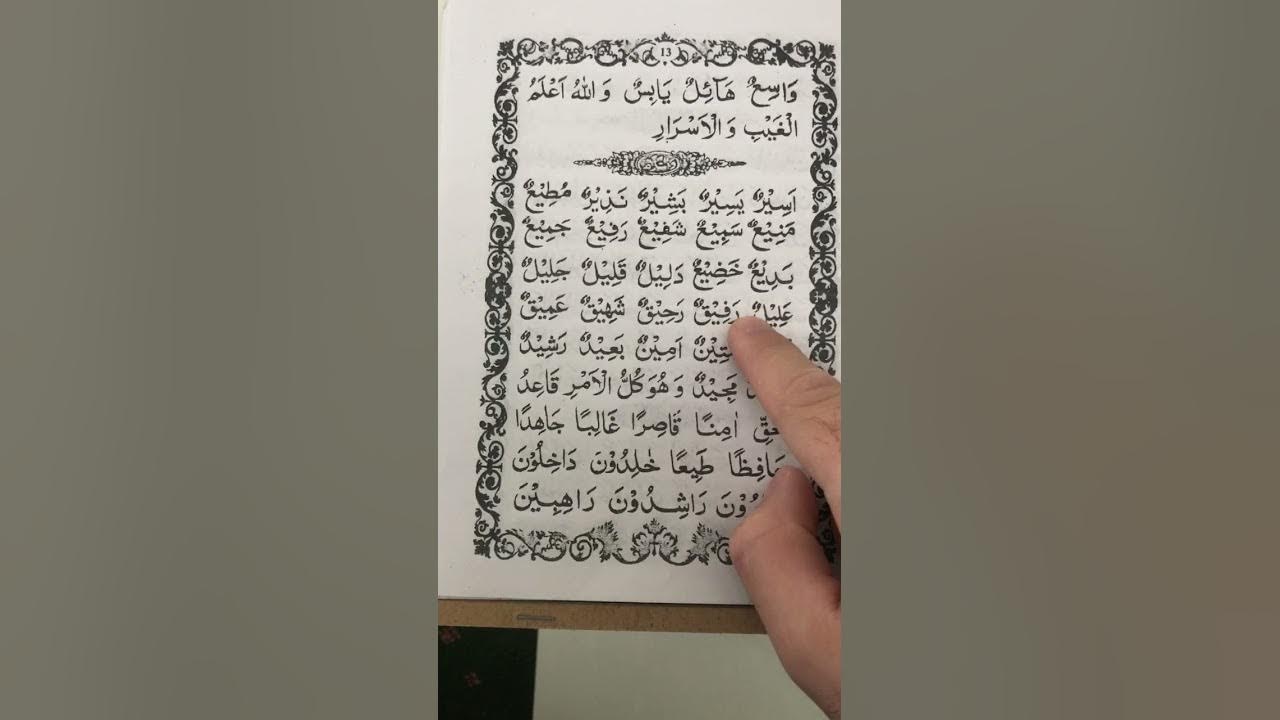 13
وَاسِعٌ هَآئِلٌ يَابِسٌ وَاللّٰهُ اَعْلَمُ
الْغَيْبِ وَالْاَسْرَارِ
اَسِيْرٌ يَسِيْرٌ بَشِيْرٌ نَذِيْرٌ مُطِيْعٌ
مَنِيْعٌ سَبِيْعٌ شَفِيْعٌ رَفِيْعٌ جَمِيْعٌ
بَدِيْعٌ خَضِيْعٌ دَلِيْلٌ قَلِيْلٌ جَلِيْلٌ
عَلِيْلٌ رَفِيْقٌ رَحِيْقٌ شَهِيْقٌ عَمِيْقٌ
اَمِيْنٌ بَعِيْدٌ رَشِيْدٌ
مَجِيْدٌ وَهُوَ كُلُّ الْاَمْرِ قَاعِدُ
اٰمِنًا قَاصِرًا غَالِبًا جَاهِدًا
طَبِعًا خٰلِدُوْنَ دَاخِلُوْنَ
رَاشِدُوْنَ رَاهِبِيْنَ